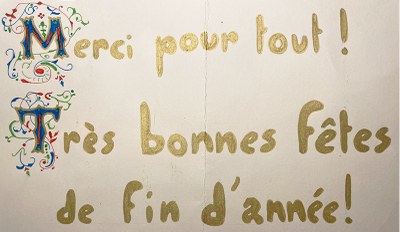 Merci pour tout !
Très bonnes fêtes
de fin d'année!